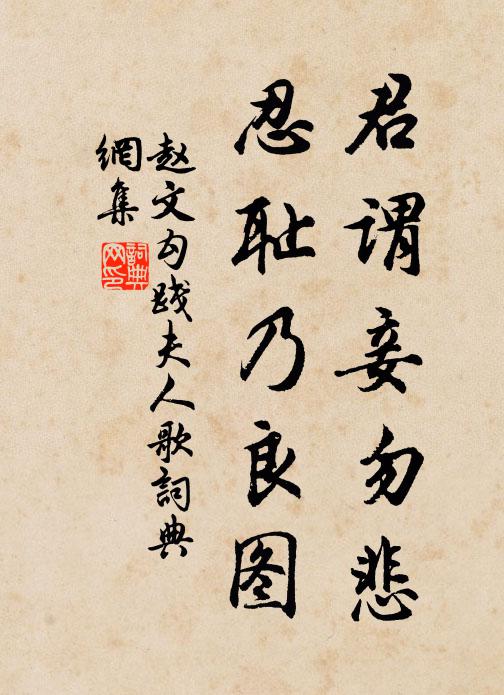 君谓妾勿悲
忍耻乃良图
赵文勾践夫人歌詞典
網集
詞典
网印